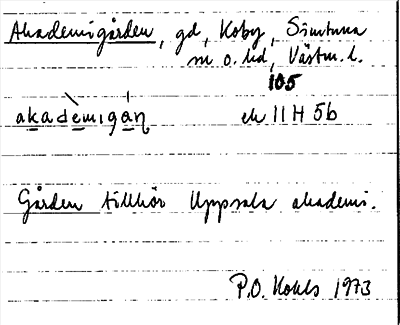 Akademigården, gd, Koby, Simtuna
sn o. hd, Västm. l.
105
akadèmigán̥ ek 11 H 5b
Gården tillhör Uppsala akademi.
P.O. Kohls 1973